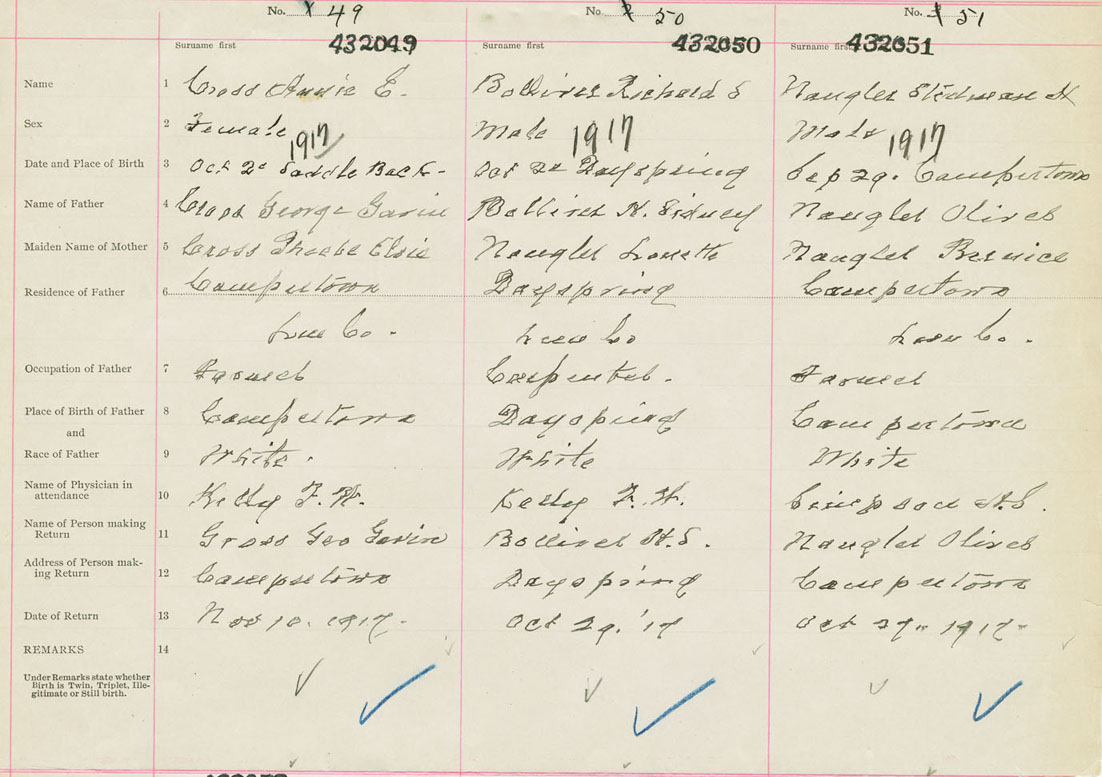 No. 49 No. 50 No. 51
Surname first 432049 Surname first 432050 Surname first 432051
Name 1 Cross Annie E. Bolliver Richard S Naugler Stedman H
Sex 2 Female Male Male
1917 1917 1917
Date and Place of Birth 3 Oct 2d Saddle Back - Oct 2d Dayspring Sep 29. Campertown
Name of Father 4 Cross George Gavin Bolliver H. Sidney Naugler Oliver
Maiden Name of Mother 5 Cross Phoebe Elsie Naugler Naugler Bernice
Residence of Father 6 Campertown Dayspring Campertown
Lun Co. Lun Co Lun Co.
Occupation of Father 7 Farmer Carpenter. Farmer
Place of Birth of Father 8 Campertown Dayspring Campertown
and
Race of Father 9 White. White White
Name of Physician in
attendance 10 Kelly F. W. Kelly F. W. Simpson
Name of Person making
Return 11 Gross Geo Gavin Bolliver H. S. Naugler Oliver
Address of Person mak-
ing Return 12 Campertown Dayspring Campertown
Date of Return 13 Nov 10. 1917- Oct 29. '17 Oct 27. 1917-
REMARKS 14
Under Remarks state whether
Birth is Twin, Triplet, Ille-
gitimate or Still birth.